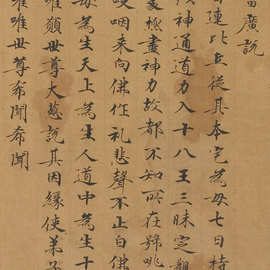 廣說
連比丘從其本宅為母七日持
以神通道力入十八王三昧定觀
極盡神力故都不知所在號咷
哽咽来向佛作礼悲聲不止白佛
母為生天上為生人道中為生十
唯願世尊大慈說其因緣使弟
唯唯世尊希聞希聞